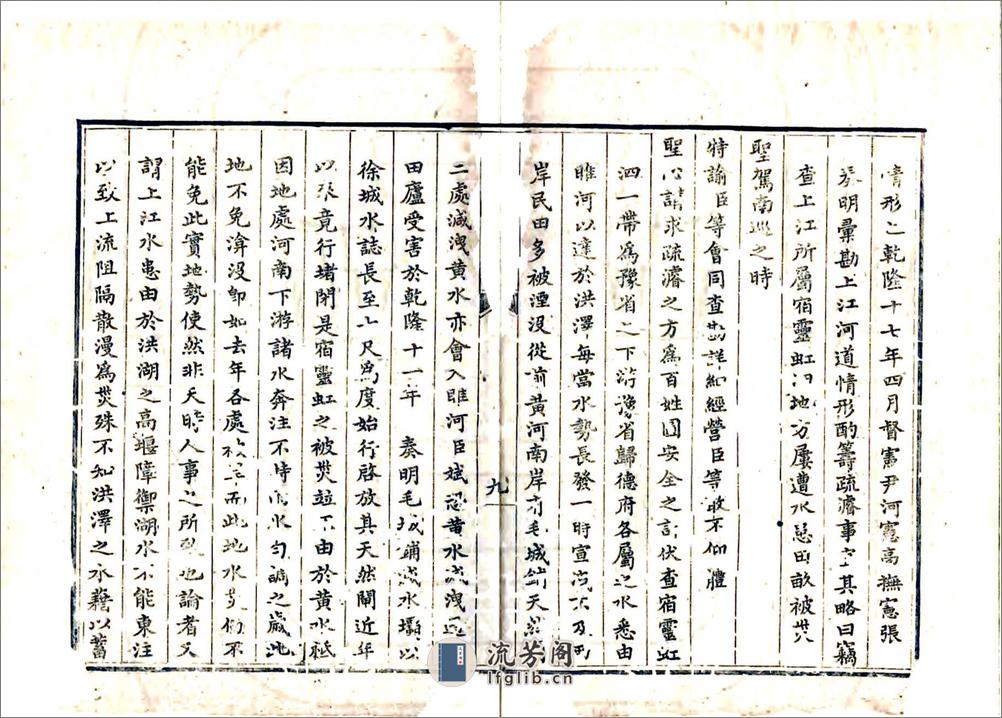 情形之乾隆十七年四月督憲尹河憲高撫憲張
奏明彙勘上江河道情形酌籌疏濬事宜其略曰竊
查上江所屬宿靈虹地方屢遭水患田畝被災
聖駕南巡之時
特諭臣等會同查勘詳細經營臣等敢不仰體
聖心講求疏濬之方為百姓圖安全之計伏查宿靈虹
泗一帶為豫省之下游豫省歸德府各屬之水悉由
睢河以達於洪澤每當水勢長發一時宣洩不及兩
岸民田多被湮没從前黃河南岸有毛城鋪天然
九
二處減洩黃水亦會入睢河臣斌恐黃水減洩
田廬受害於乾隆十一年 奏明毛城鋪減水壩以
徐城水誌長至七尺為度始行啓放其天然閘近年
以來竟行堵閉是宿靈虹之被災並不由於黃水祗
因地處河南下游諸水奔注不特水之歲此
地不免渰没即如去年各處而此地水災仍不
能免此實地勢使然非天時人事之所致也論者又
謂上江水患由於洪湖之高堰障禦湖水不能東注
以致上流阻隔散漫為災殊不知洪澤之水藉以蓄
流芳阁
lfglib.cn